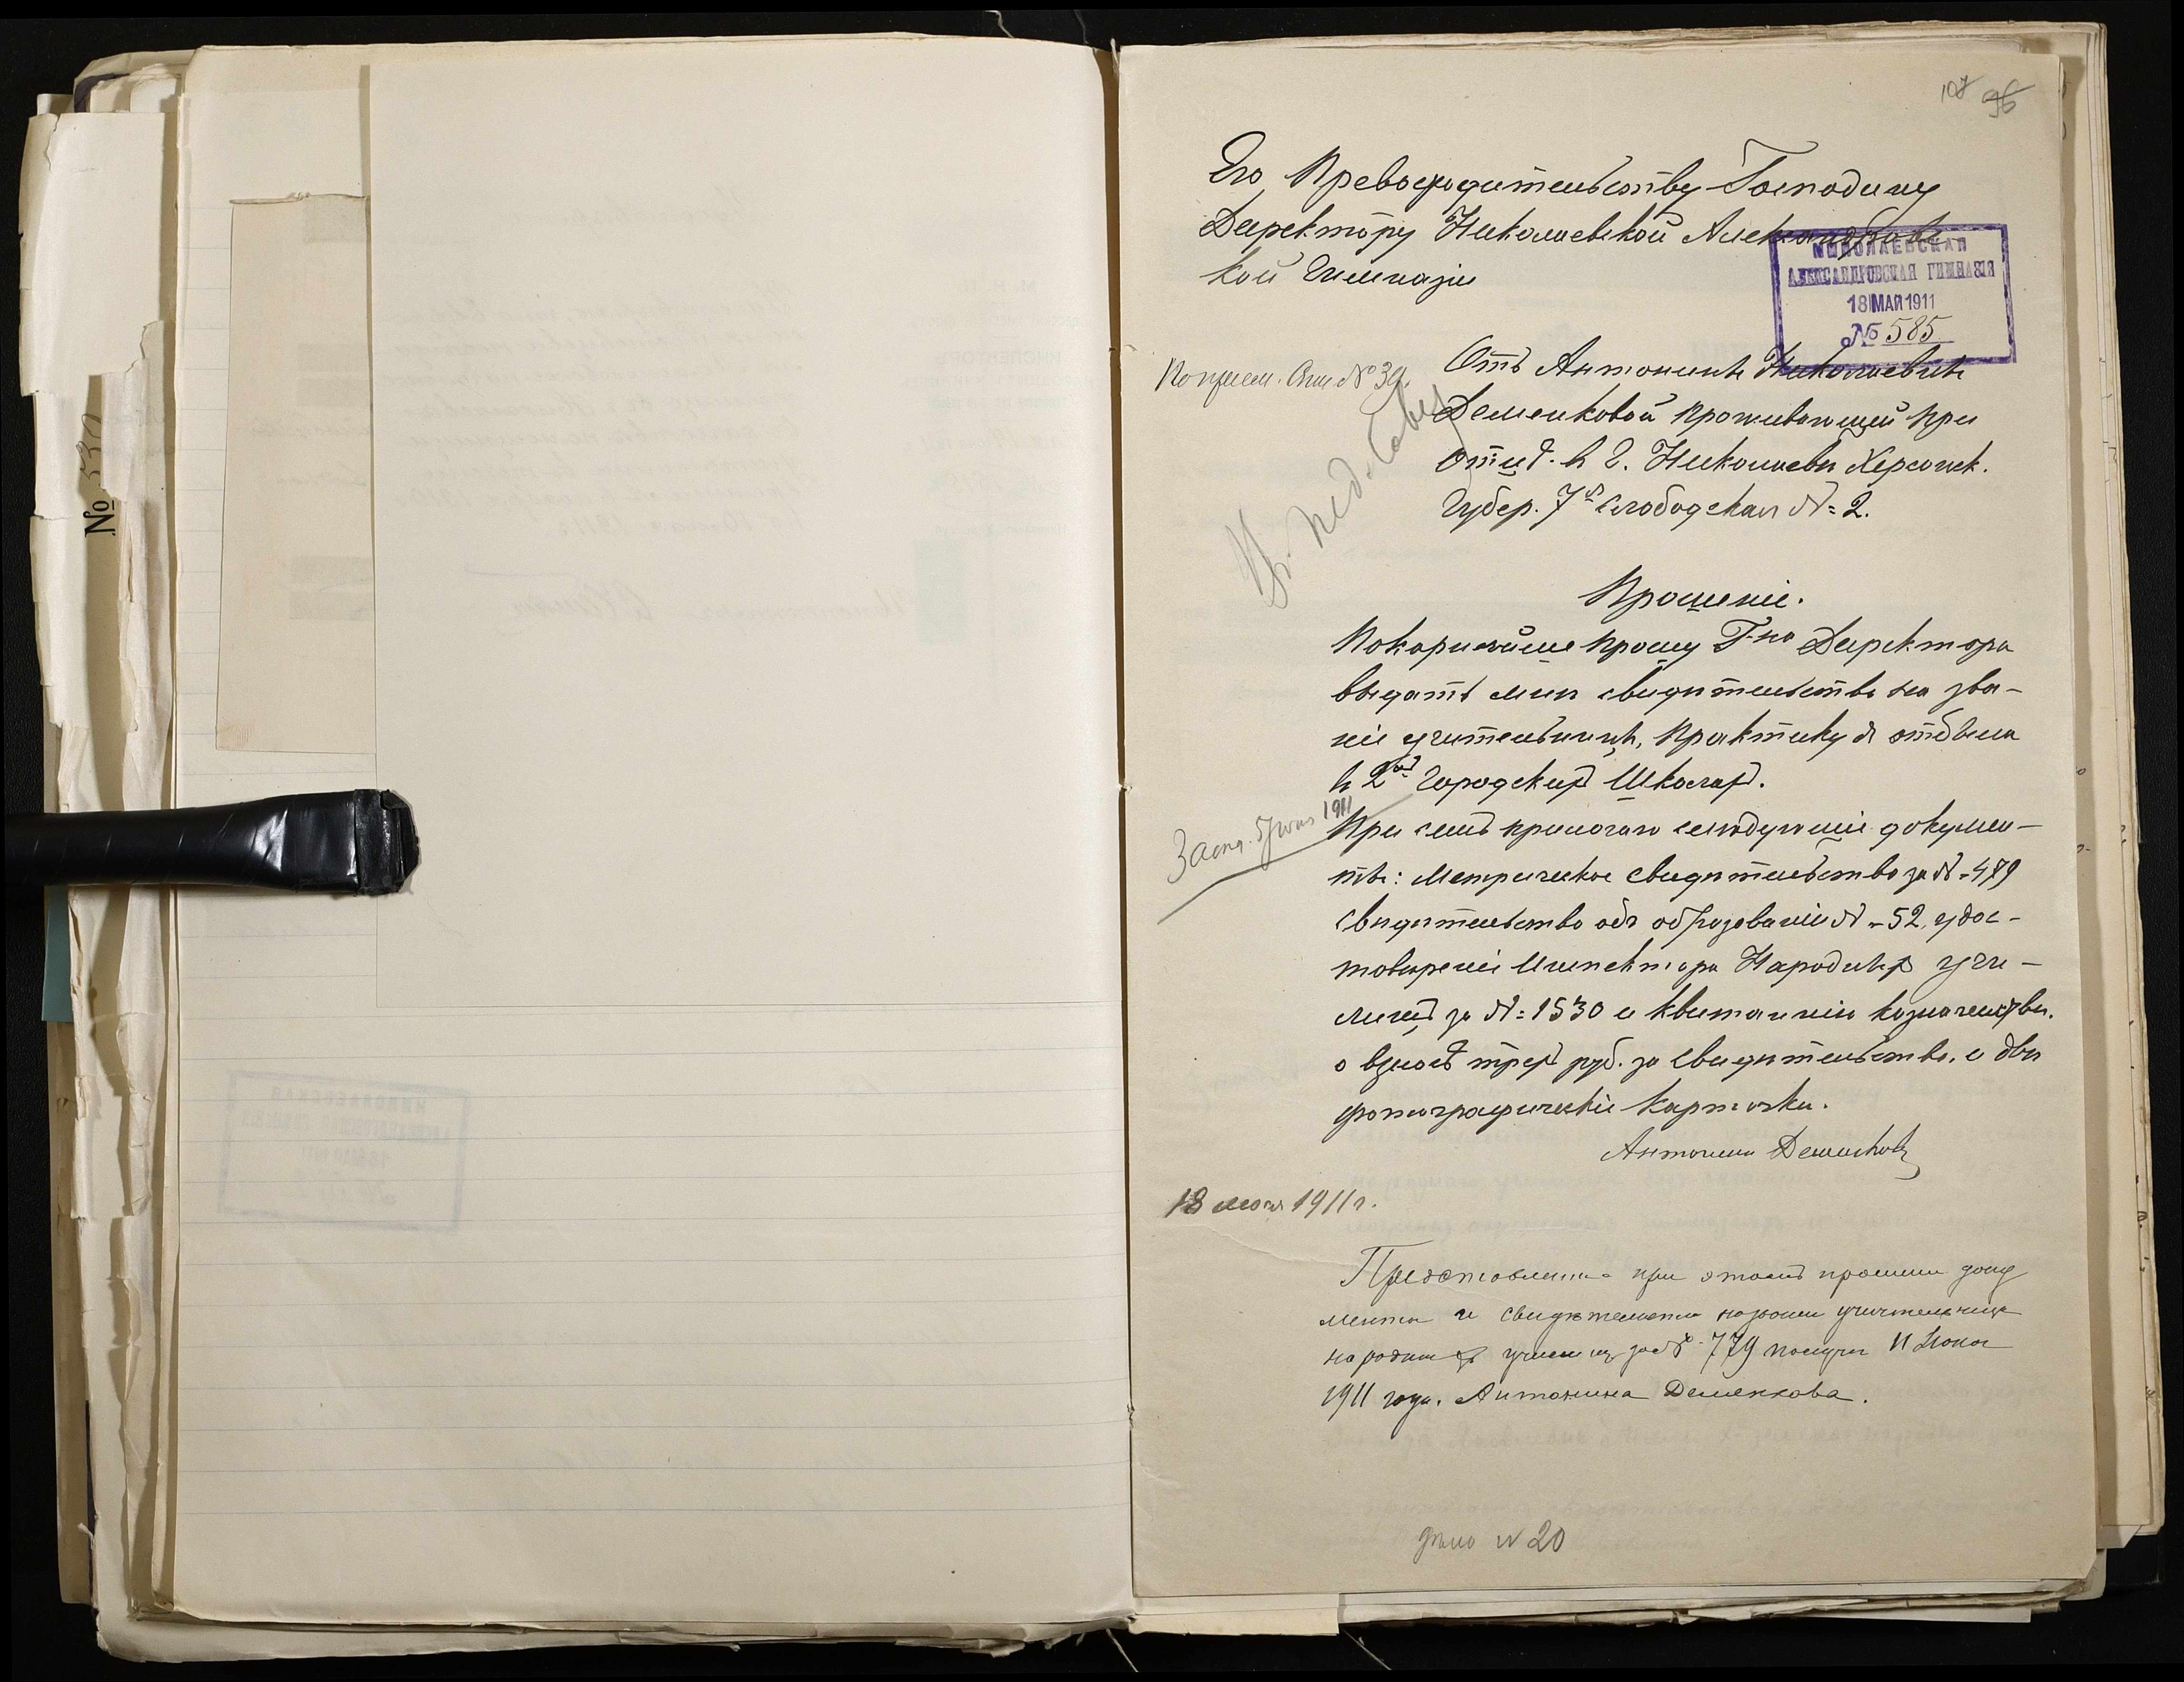 № 530
107 96
Его Превосходительству Господину
Директору Николаевской Александровс
кой Гимназіи
НИКОЛАЕВСКАЯ
АЛЕКСАНДРОВСКАЯ ГИМНАЗІЯ
18 МАЯ 1911
№ 585
Отъ Антонины Николаевны
Деменковой проживающей при
отцѣ въ г. Николаевѣ Херсонск.
Губер. 7я Слободская № 2.
№ 39.
Въ Пед. Совѣтъ
Прошеніе.
Покорнѣйше прошу Г-на Директора
выдать мнѣ свидѣтельство на зва-
ніе учительницы, практику я отбыла
въ 2хъ Городскихъ Школахъ.
Засѣд. 5 Іюня 1911
При семъ прилагаю слѣдующіе докумен-
ты: Метрическое свидѣтельство за № 479
Свидѣтельство объ образованіи № 52, удос-
товѣреніе Инспектора Народныхъ учи-
лищъ за № 1530 и квитанцію казначейства
о взносѣ трехъ руб. за свидѣтельство, и двѣ
фотографическіе карточки.
Антонина Деменкова
18 мая 1911 г.
Представленные при этомъ прошеніи доку
менты и свидѣтельство на званіе учительницы
народныхъ училищъ за № 779 получила 11 Іюня
1911 года. Антонина Деменкова.
дѣло № 20